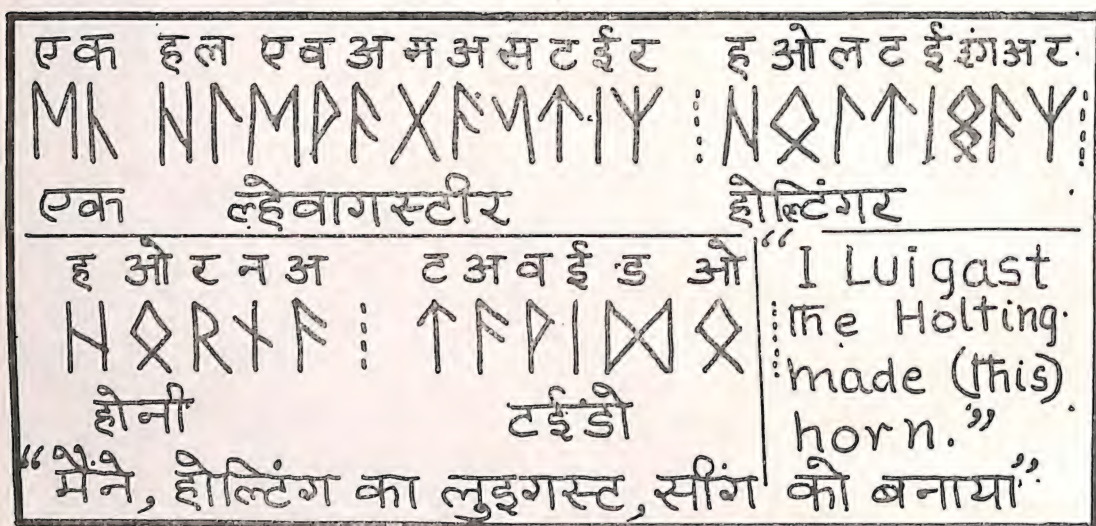 एक हल एव अ म अ स ट ई र ह ओ ल ट ई इंग अ र
ᛖᚲ ᚺᛚᛖᚹᚨᚷᚨᛊᛏᛁᛉ ⁞ ᚺᛟᛚᛏᛁᛜᚨᛉ ⁞
एक ल्हेवागस्टीर होल्टिंगर
ह ओ र न अ ट अ व ई ड ओ
ᚺᛟᚱᚾᚨ ⁞ ᛏᚨᚹᛁᛞᛟ ⁞
होनी टईडो
“I Luigast
the Holting
made (this)
horn.”
“मैंने, होल्टिंग का लुइगस्ट, सींग को बनाया”